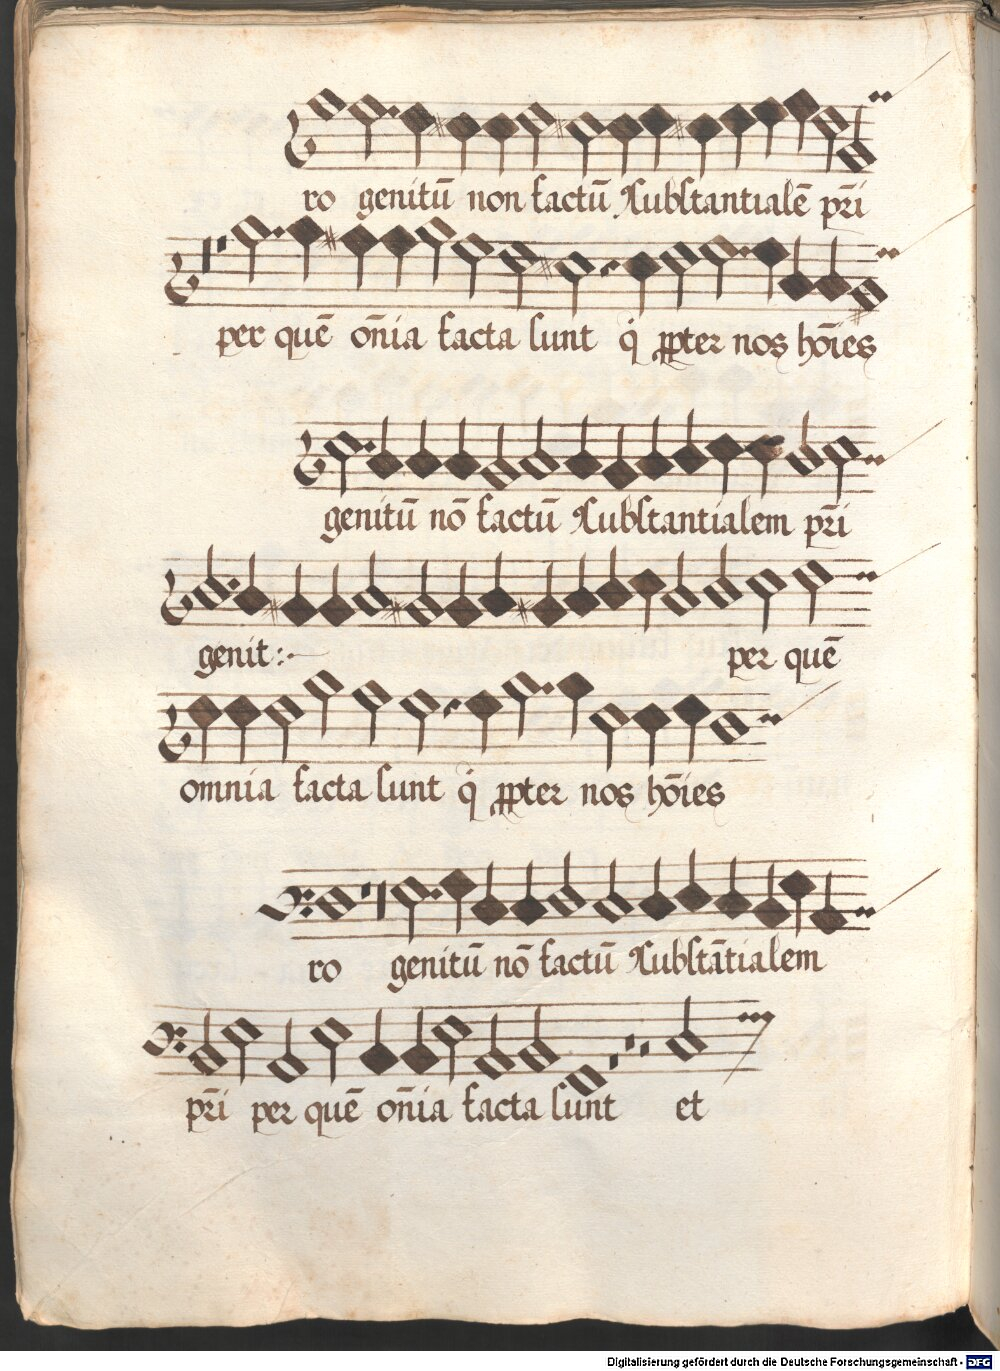 ro genitū non factū Xubstantialē pr̄i
per quē on̄ia facta sunt q̇ ꝓpter nos hōies
genitū nō factū Xubstantialem pr̄i
genit:· per quē
omnia facta sunt q̇ ꝓpter nos hōies
ro genitū nō factū Xubstātialem
pr̄i per quē on̄ia facta sunt et
Digitalisierung gefördert durch die Deutsche Forschungsgemeinschaft - DFG